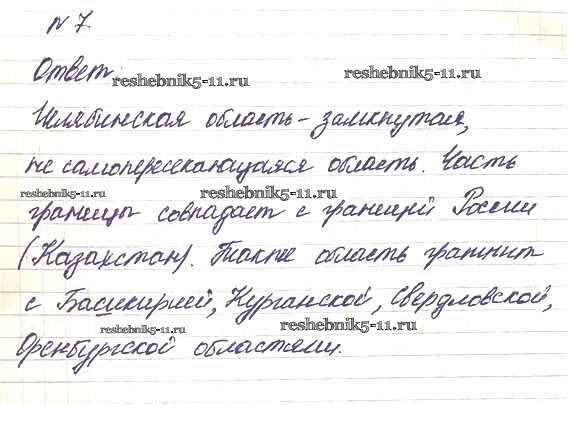 № 7.
Ответ:
reshebnik5-11.ru
reshebnik5-11.ru
Челябинская область - замкнутая,
не самопересекающаяся область. Часть
reshebnik5-11.ru
reshebnik5-11.ru
границы совпадает с границей России
(Казахстан). Также область граничит
с Башкирией, Курганской, Свердловской,
reshebnik5-11.ru
reshebnik5-11.ru
Оренбургской областями.